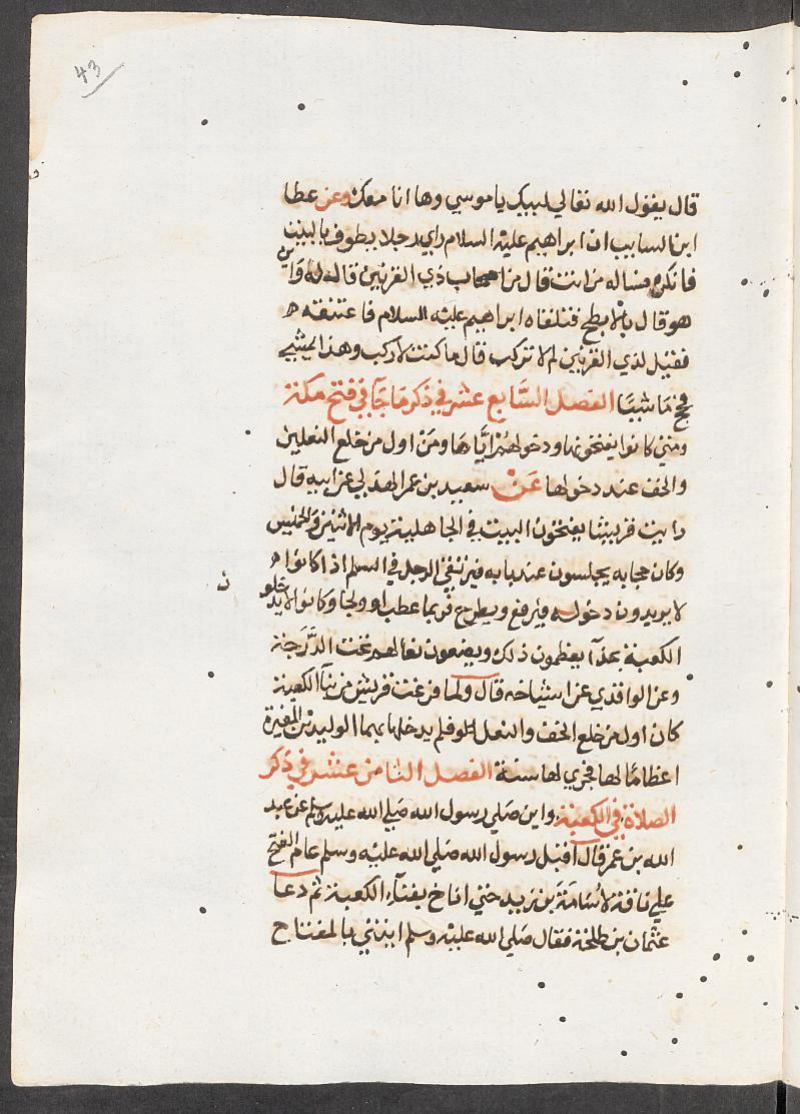 43
قال يقول الله تعالي لبيك يا موسي وها انا معك وعن عطا
ابن السايب ان ابراهيم عليه السلام راي رجلا يطوف بالبيت
فانكره فساله من انت قال من اصحاب ذي القرنين قال له واين
هو قال بالابطح فتلقاه ابراهيم عليه السلام فاعتنقه ه
فقيل لذي القرنين لم لا تركب قال ما كنت لاركب وهذا يمشي
فحج ماشيا الفصل السابع عشر في ذكر ما جآ في فتح مكة
ومتي كانوا يفتحونها ودخولهم اياها ومن اول من خلع النعلين
والخف عند دخولها عن سعيد بن عمر الهذلي عن ابيه قال
رايت قريشا يفتحون البيت في الجاهلية يوم الاثنين والخميس
وكان حجابه يجلسون عند بابه فيرتقي الرجل في السلم اذا كانوا ه
لا يريدون دخوله فيرفع ويطرح فربما عطب او ولجا وكانوا لا يدخلو
ن
الكعبة بحذآ يعظمون ذلك ويضعون نعالهم تحت الدرجة
وعن الواقدي عن اشياخه قال ولما فرغت قريش من بنآ الكعبة
كان اول من خلع الخف والنعل فلم يدخلها بهما الوليد بن المغيرة
اعظاما لها فجري لها سنة الفصل الثامن عشر في ذكر
الصلاة في الكعبة واين صلي رسول الله صلي الله عليه وسلم عن عبد
الله بن عمر قال اقبل رسول الله صلي الله عليه وسلم عام الفتح
علي ناقة لاسامة بن زيد حتي اناخ بفنآء الكعبة ثم دعا
عثمان بن طلحة فقال صلي الله عليه وسلم ايتني بالمفتاح